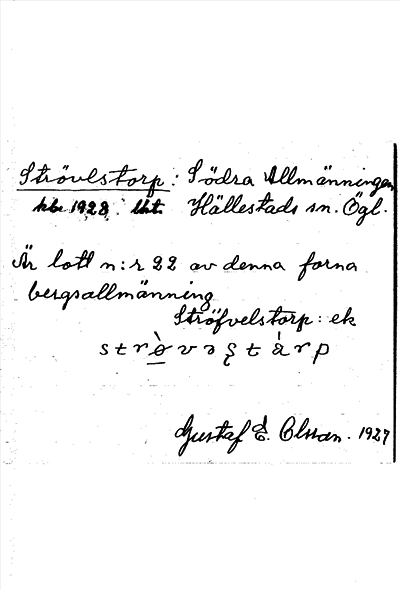 Strövelstorp: Södra Allmänningen
kbr 1928. lht. Hällestads sn. Ögl.
Är lott n:r 22 av denna forna
bergsallmänning
Ströfvelstorp: ek
strø̀vəʂtàrp
Gustaf E. Olsson. 1927